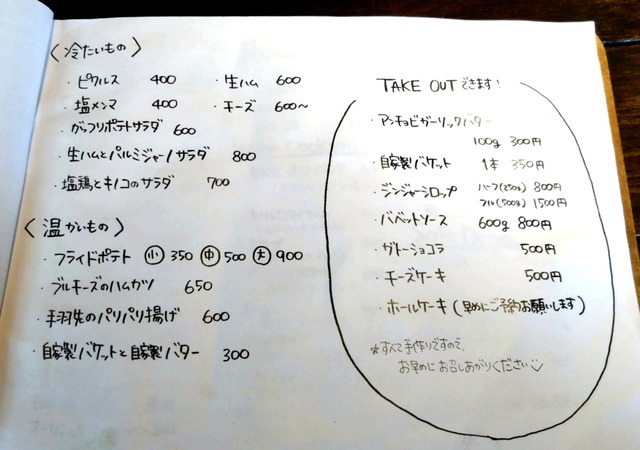 〈冷たいもの〉
・ピクルス 400 ・生ハム 600
・塩メンマ 400 ・チーズ 600〜
・がっつりポテトサラダ 600
・生ハムとパルミジャーノサラダ 800
・塩鶏とキノコのサラダ 700
〈温かいもの〉
・フライドポテト 小 350 中 500 大 900
・ブルーチーズのハムカツ 650
・手羽先のパリパリ揚げ 600
・自家製バケットと自家製バター 300
TAKE OUTできます!
・アンチョビガーリックバター
100g 300円
・自家製バケット 1本 350円
・ジンジャーシロップ ハーフ(250g) 800円
フル(500g) 1500円
・バベットソース 600g 800円
・ガトーショコラ 500円
・チーズケーキ 500円
・ホールケーキ(早めにご予約お願いします)
*すべて手作りですので、
お早めにお召しあがりください